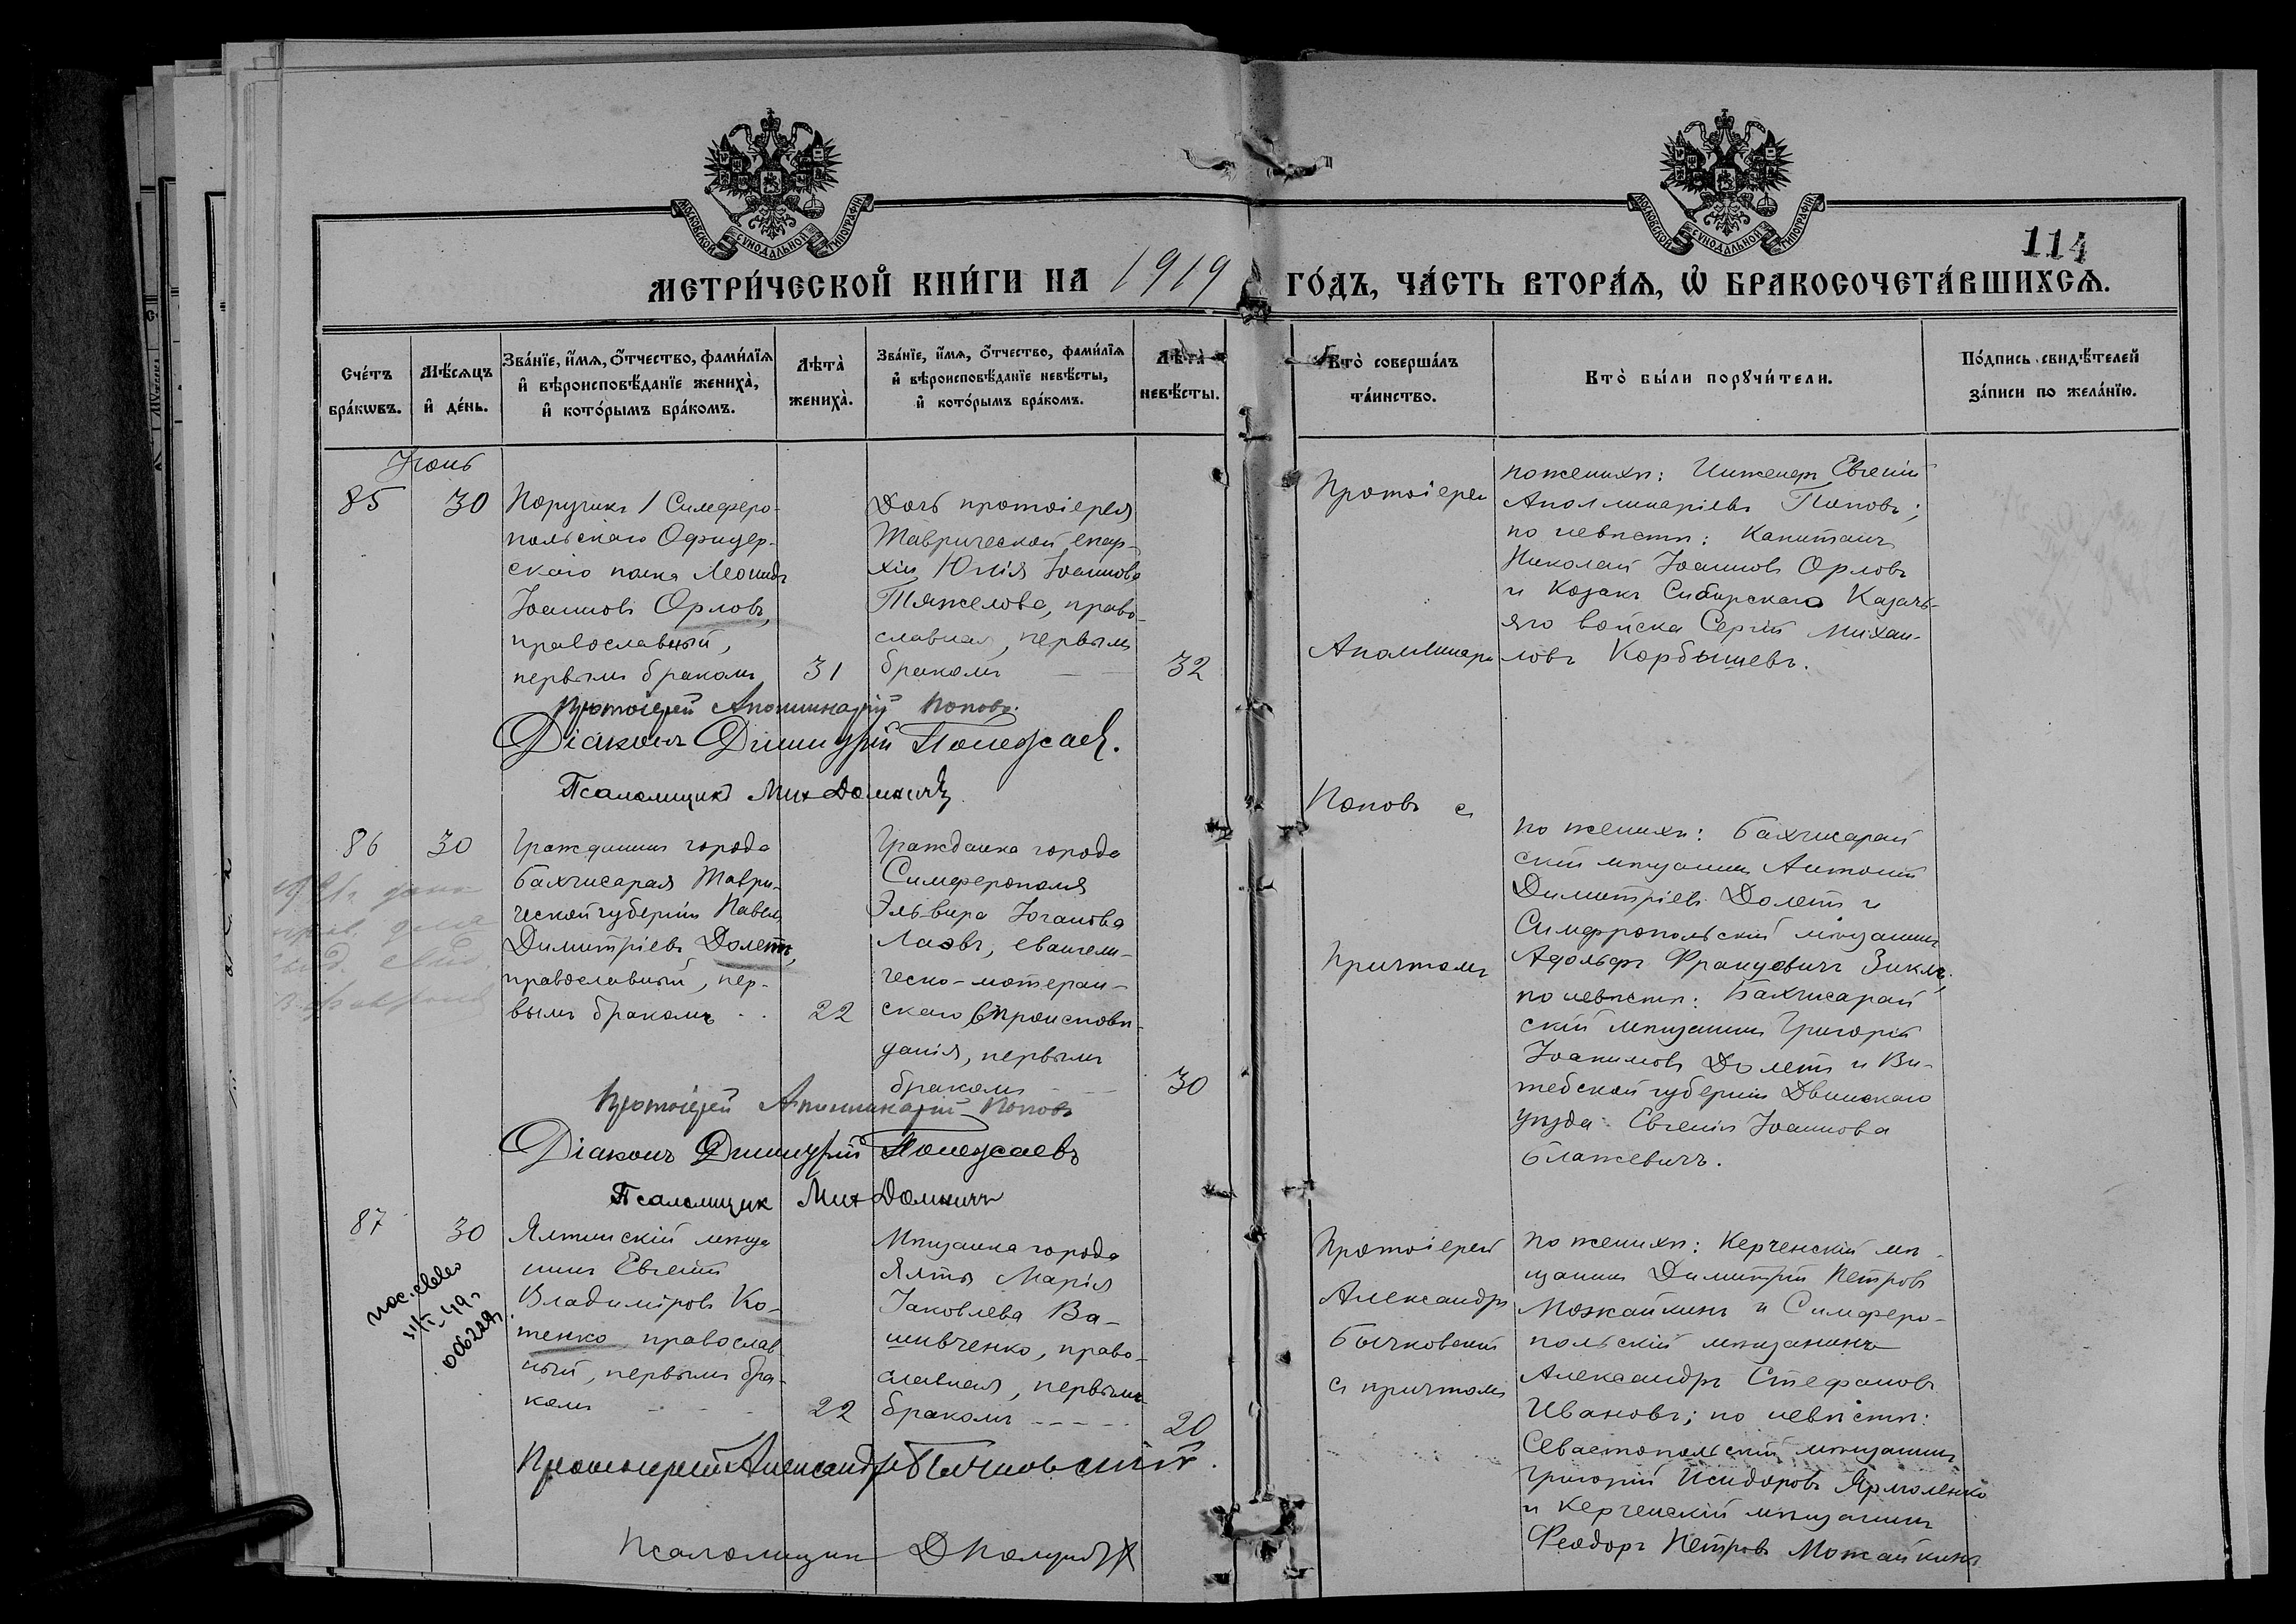 МОСКОВСКОЙ СѴНОДАЛЬНОЙ ТИПОГРАФІИ
МОСКОВСКОЙ СѴНОДАЛЬНОЙ ТИПОГРАФІИ
114
МЕТРИ́ЧЕСКОЙ КНИ́ГИ НА 1919 ГО́ДЪ, ЧА́СТЬ ВТОРА́Ѧ, Ѽ БРАКОСОЧЕТА́ВШИХСѦ.
Сче́тъ бра́кѡвъ.
Мѣ́сяцъ и҆ де́нь.
Зва́нїе, и҆́мя, ѻ҆́тчество, фами́лїя и҆ вѣроисповѣ́данїе жениха̀, и҆ кото́рымъ бра́комъ.
Лѣта̀ жениха̀.
Зва́нїе, и҆́мя, ѻ҆́тчество, фами́лїя и҆ вѣроисповѣ́данїе невѣ́сты, и҆ кото́рымъ бра́комъ.
Лѣта̀ невѣ́сты.
Кто̀ соверша́лъ та́инство.
Кто̀ бы́ли порꙋчи́тели.
По́дпись свидѣ́телей за́писи по жела́нїю.
Іюнь
85
30
Поручикъ 1 Симферо-
польскаго Офицер-
скаго полка Леонидъ
Іоанновъ Орловъ,
православный,
первымъ бракомъ
31
Дочь протоіерея
Таврической епар-
хіи Юлія Іоаннова
Тяжелова, право-
славная, первымъ
бракомъ
32
Протоіерей
Аполлинарій
Поповъ съ
Причтомъ
по женихѣ: Инженеръ Евгеній
Аполлинаріевъ Поповъ;
по невѣстѣ: Капитанъ
Николай Іоанновъ Орловъ
и Козакъ Сибирскаго Казачь-
яго войска Сергій Михаи-
ловъ Корбышевъ.
Протоіерей Аполлинарій Поповъ.
Діаконъ Димитрій Полежаев.
Псаломщикъ Мих Домничъ
86
30
Гражданинъ города
Бахчисарая Таври-
ческой губерніи Павелъ
Димитріевъ Долетъ,
православный, пер-
вымъ бракомъ
22
Гражданка города
Симферополя
Эльвира Іоганова
Лаовъ, евангели-
ческо-лютеран-
скаго вѣроисповѣ-
данія, первымъ
бракомъ
30
по женихѣ: Бахчисарай
скій мѣщанинъ Антоній
Димитріевъ Долетъ и
Симферопольскій мѣщанинъ
Адольфъ Францовичъ Зиклъ;
по невѣстѣ: Бахчисарай
скій мѣщанинъ Григорій
Іоакимовъ Долетъ и Ви-
тебской губерніи Двинскаго
уѣзда Евгенія Іоаннова
Блажевичъ.
Протоіерей Аполлинарій Поповъ
Діаконъ Димитрій Полежаевъ
Псаломщик Мих Домничъ
87
30
Ялтинскій мѣща
нинъ Евгеній
Владиміровъ Ко-
тенко православ
ный, первымъ бра-
комъ
22
Мѣщанка города
Ялты Марія
Іаковлева Ва-
шивченко, право-
славная, первымъ
бракомъ
20
Протоіерей
Александръ
Бычковскій
съ причтомъ
по женихѣ: Керченскій мѣ-
щанинъ Димитрій Петровъ
Можайкинъ и Симферо-
польскій мѣщанинъ
Александръ Стефановъ
Ивановъ; по невѣстѣ:
Севастопольскій мѣщанинъ
Григорій Исидоровъ Ярмоленко
и Керченскій мѣщанинъ
Феодоръ Петровъ Можайкинъ
Протоіерей Александръ Бычковскій.
Псаломщикъ